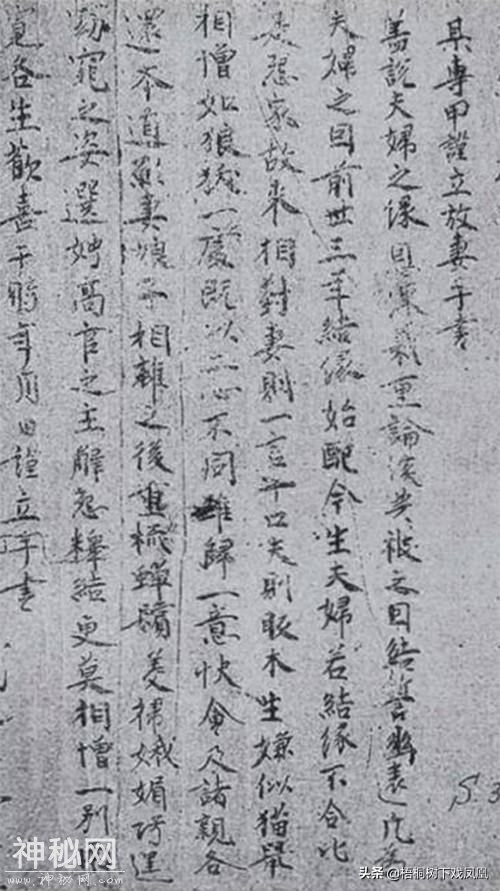 某專甲謹立放妻手書
蓋說夫婦之緣恩深義重論談共被之因結誓幽遠凡為
夫婦之因前世三年結緣始配今生夫婦若結緣不合比
是怨家故來相對妻則一言十口夫則販木生嫌似猫鼠
相憎如狼一處既以二心不同難歸一意快會及諸親各
還本道願妻娘子相離之後重梳蟬鬢美掃娥媚巧逞
窈窕之姿選娉高官之主解怨釋結更莫相憎一別兩
寬各生歡喜于時年月日謹立手書
S.3
神秘网
头条 @梧桐树下戏凤凰